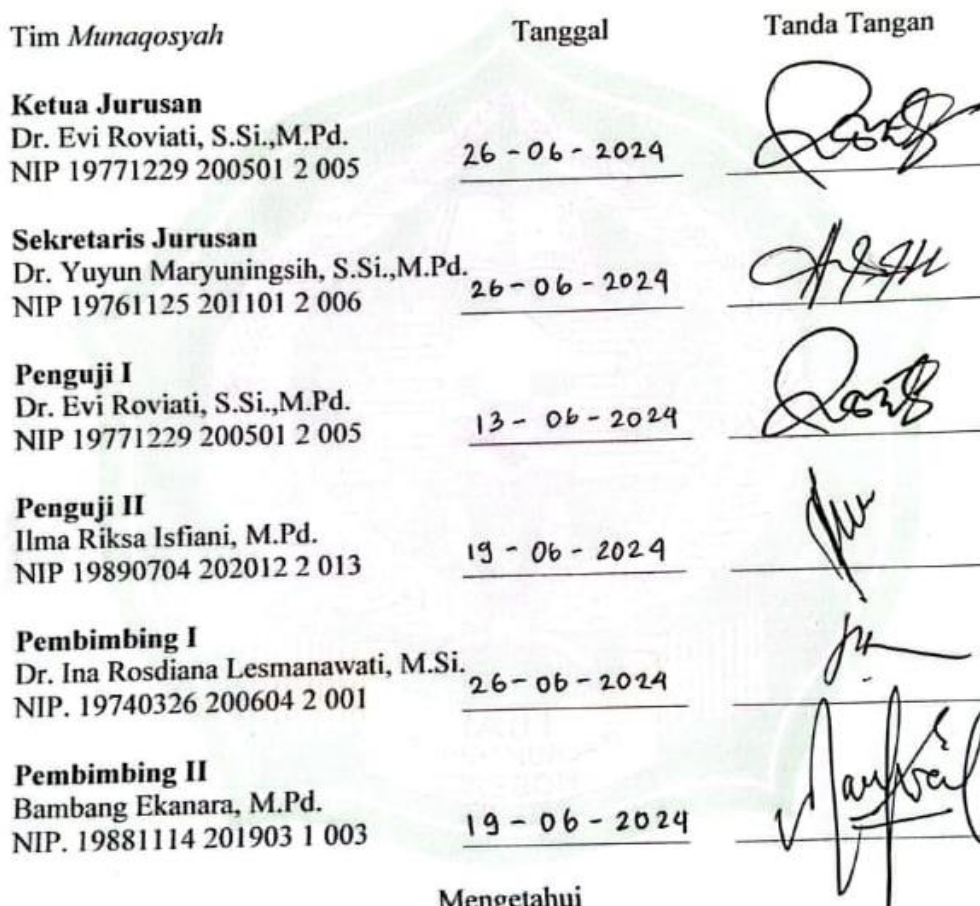 Tim Munaqosyah Tanggal Tanda Tangan
Ketua Jurusan
Dr. Evi Roviati, S.Si.,M.Pd.
NIP 19771229 200501 2 005 26 - 06 - 2024
Sekretaris Jurusan
Dr. Yuyun Maryuningsih, S.Si.,M.Pd.
NIP 19761125 201101 2 006 26 - 06 - 2024
Penguji I
Dr. Evi Roviati, S.Si.,M.Pd.
NIP 19771229 200501 2 005 13 - 06 - 2024
Penguji II
Ilma Riksa Isfiani, M.Pd.
NIP 19890704 202012 2 013 19 - 06 - 2024
Pembimbing I
Dr. Ina Rosdiana Lesmanawati, M.Si.
NIP. 19740326 200604 2 001 26 - 06 - 2024
Pembimbing II
Bambang Ekanara, M.Pd.
NIP. 19881114 201903 1 003 19 - 06 - 2024
Mengetahui